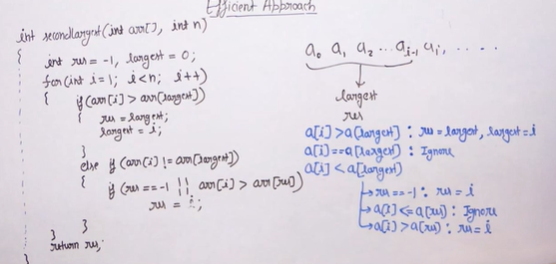 Efficient Approach
int secondLargest(int arr[], int n)
{
int res = -1, largest = 0;
for(int i=1; i<n; i++)
{
if(arr[i] > arr[largest])
{ res = largest;
largest = i;
}
else if (arr[i] != arr[largest])
{
if (res == -1 || arr[i] > arr[res])
res = i;
}
}
return res;
}
a₀ a₁ a₂ ... aᵢ₋₁ aᵢ, . . . .
largest
res
a[i] > a[largest] : res = largest, largest = i
a[i] == a[largest] : Ignore
a[i] < a[largest]
→ res == -1 : res = i
→ a[i] <= a[res] : Ignore
→ a[i] > a[res] : res = i